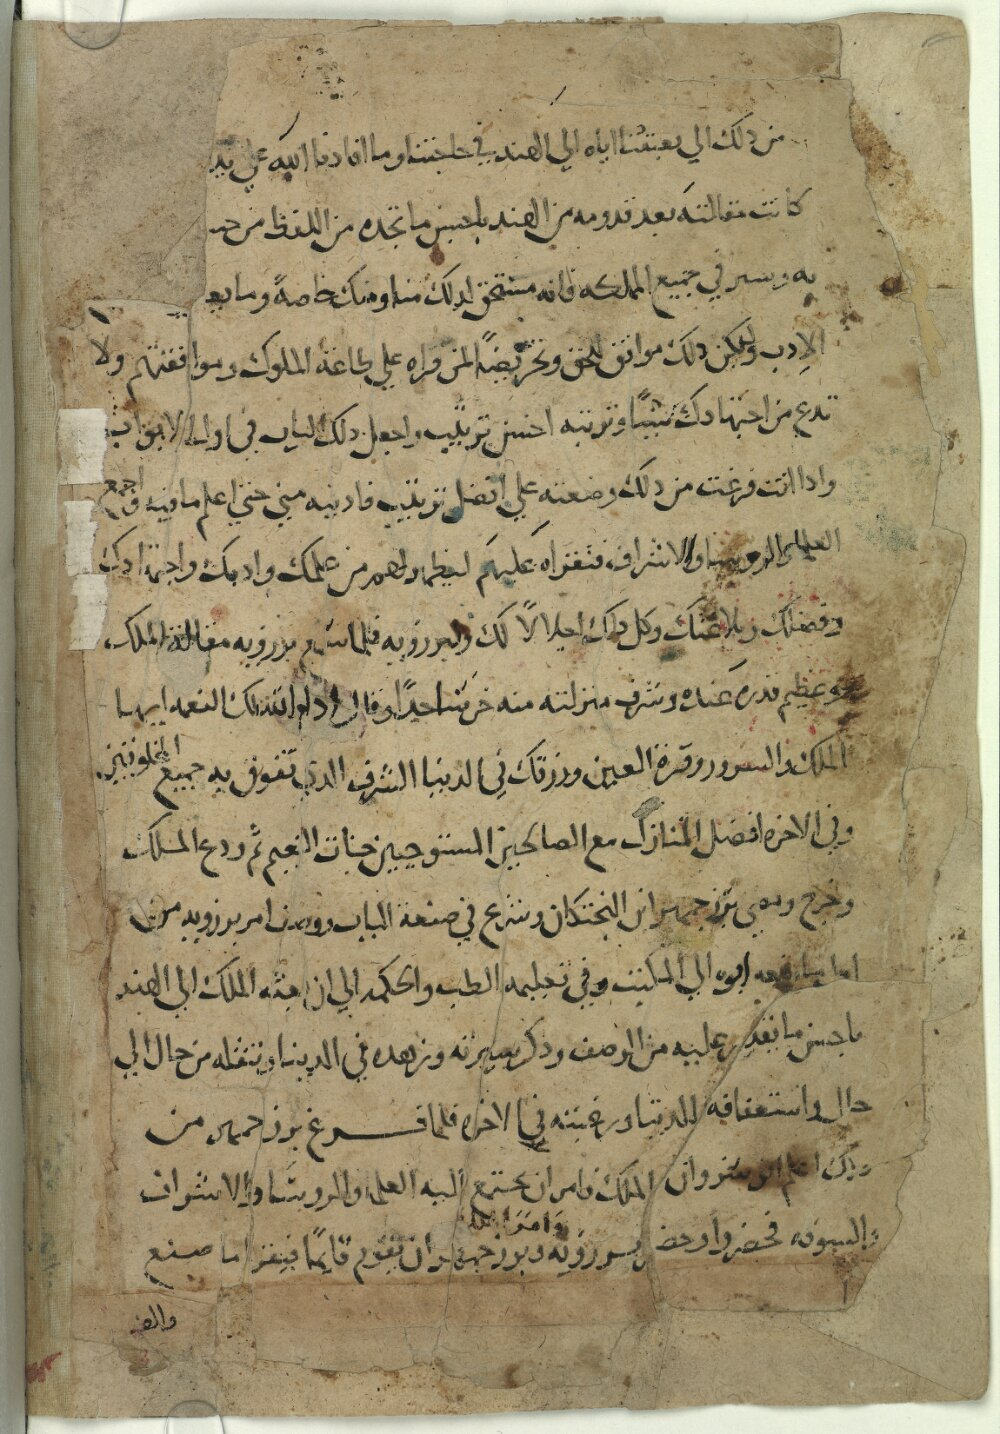 من ذلك الي بعثتنا اياه الي الهند في حاجتنا وما افادنا الله علي يد
كانت مقالته بعد قدومه من الهند باحسن ما تجده من اللفظ من
به وسير في جميع المملكه فانه مستحق لذلك منا ومنك خاصةً وما
الادب وليكن ذلك موافق للحق وتحريضًا لمن قراه علي طاعة الملوك وموافقتهم ولا
تدع من اجتهادك شيئًا وترتبه احسن ترتيب واجعل ذلك الباب في اول الابواب
واذا انت فرغت من ذلك وضعته علي افضل ترتيب فادنيه مني حتي اعلم ما فيه واجمع
العلما والروسا والاشراف فتقراه عليهم ليظهر لهم من علمك وادبك واجتهادك
وفضلك وبلاغتك وكل ذلك اجلالاً لك ولبرزويه فلما سمع بزرويه مقالة الملك
وعظيم قدره عنده وشرف منزلته منه خر ساجدًا وقال ادام الله لك النعمه ايها
الملك والسرور وقرة العين ورزقك في الدنيا الشرف الذي تفوق به جميع المخلوقين
وفي الاخره افضل المنازل مع الصالحين المستوجبين جنات النعيم ثم ودع الملك
وخرج بزرجمهر ابن البختكان وشرع في صنعة الباب ووصف امر برزويه من
ابوه الي المكتب وفي تعليمه الطب والحكمه الي ان بعثه الملك الي الهند
باحسن ما يقدر عليه من الوصف وذكر بصيرته وزهده في الدنيا وتنقله من حال الي
حال واستعفافه للدنيا ورغبته في الاخره فلما فرغ بزرجمهر من
ذلك اعلم انوشروان الملك فامر ان يجتمع اليه العلما والروسا والاشراف
والسوقه فحضروا وحضر برزويه وبزرجمهر وامر ان يقوم قايمًا فيقرا ما صنع